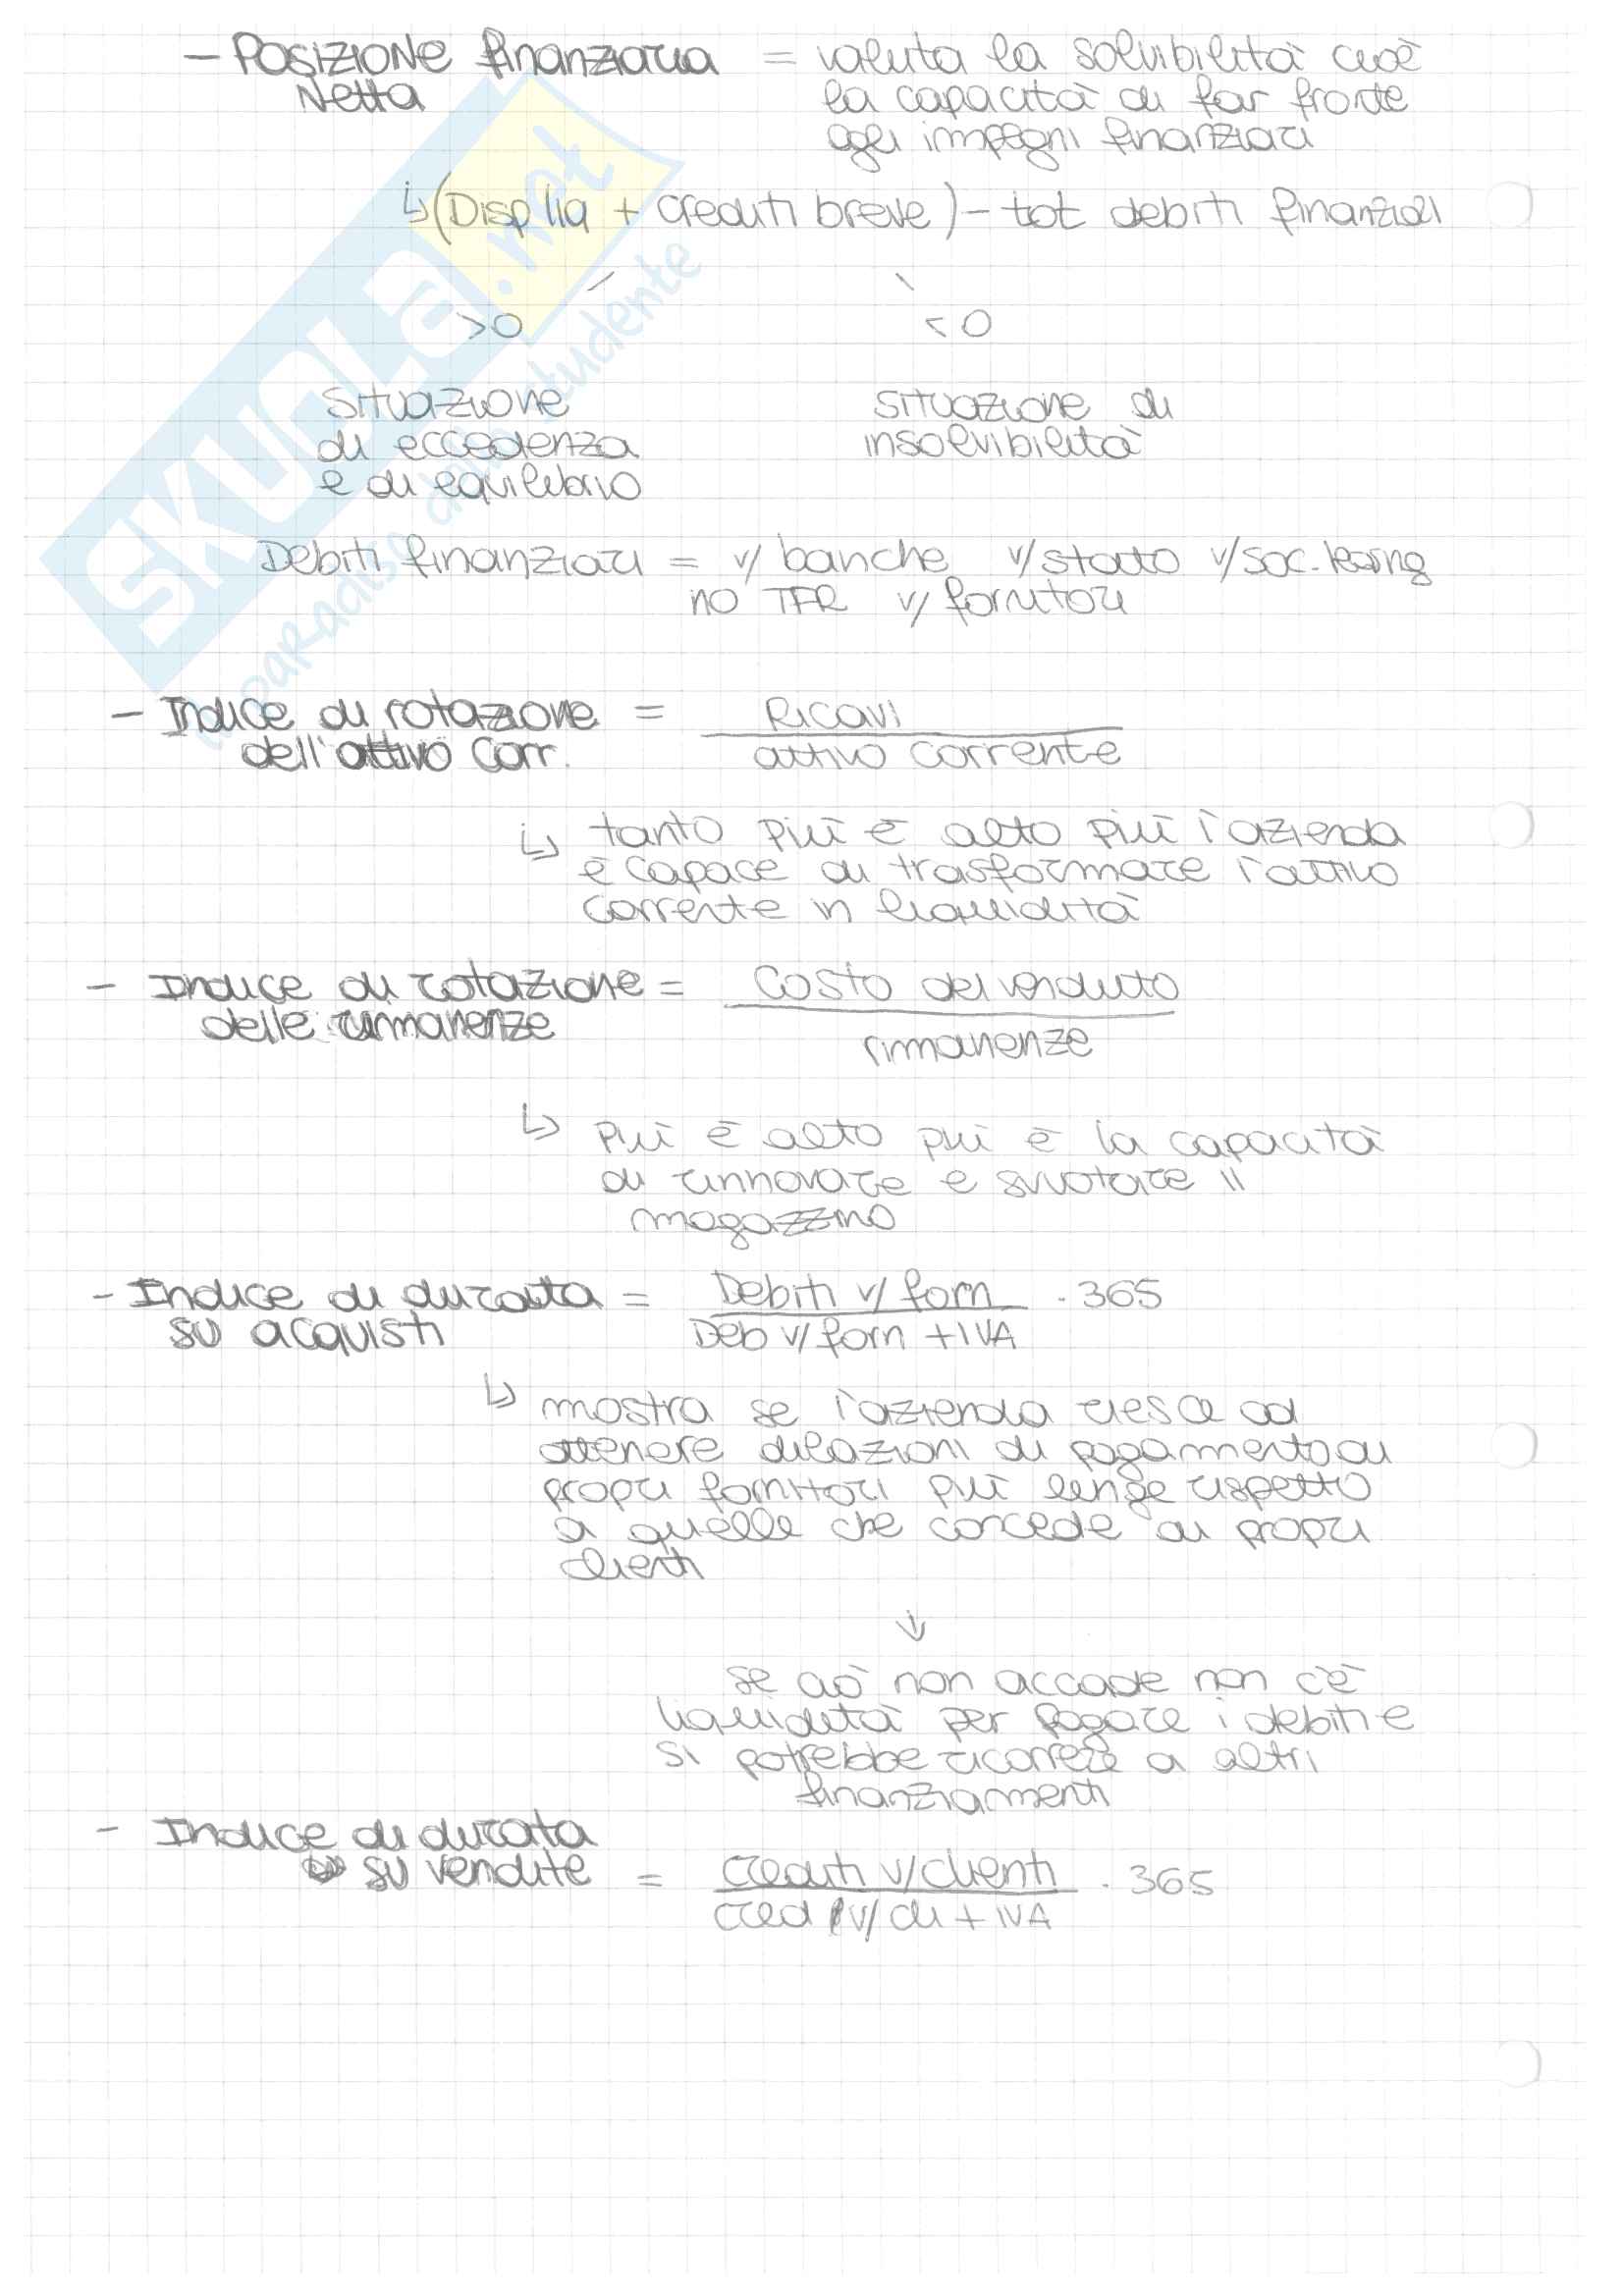 - POSIZIONE finanziaria = valuta la solvibilità cioè
Netta la capacità di far fronte
agli impegni finanziari
↳ (Disp liq + crediti breve) - tot debiti finanziari
>0 <0
Situazione situazione di
di eccedenza insolvibilità
e di equilibrio
Debiti finanziari = v/ banche v/stato v/soc. leasing
no TFR v/ fornitori
- Indice di rotazione = Ricavi
dell'attivo corr. attivo corrente
↳ tanto più è alto più l'azienda
è capace di trasformare l'attivo
corrente in liquidità
- Indice di rotazione = Costo del venduto
delle rimanenze rimanenze
↳ Più è alto più è la capacità
di rinnovare e svuotare il
magazzino
- Indice di durata = Debiti v/ forn · 365
su acquisti Deb v/ forn + IVA
↳ mostra se l'azienda riesce ad
ottenere dilazioni di pagamento ai
propri fornitori più lunghe rispetto
a quelle che concede ai propri
clienti
↓
se ciò non accade non c'è
liquidità per pagare i debiti e
si potrebbe ricorrere a altri
finanziamenti
- Indice di durata
su vendite = crediti v/clienti · 365
cred v/ cli + IVA
SKUOLA.net
il paradiso dello studente